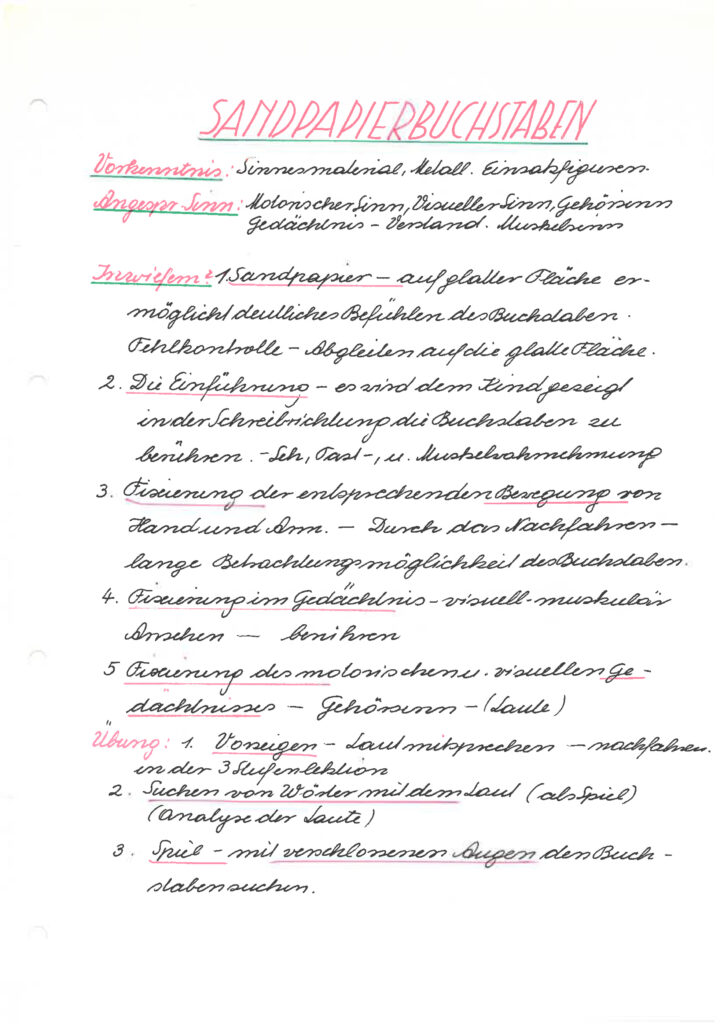 SANDPAPIERBUCHSTABEN
Vorkenntnis: Sinnesmaterial, Metall. Einsatzfiguren.
Angespr. Sinn: Motorischer Sinn, Visueller Sinn, Gehörsinn
Gedächtnis - Verstand. Muskelsinn
Inwiefern? 1. Sandpapier - auf glatter Fläche er-
möglicht deutliches Befühlen des Buchstaben.
Fehlkontrolle - Abgleiten auf die glatte Fläche.
2. Die Einführung - es wird dem Kind gezeigt
in der Schreibrichtung die Buchstaben zu
berühren. - Seh, Tast-, u. Muskelwahrnehmung
3. Fixierung der entsprechenden Bewegung von
Hand und Arm. - Durch das Nachfahren -
lange Betrachtungsmöglichkeit des Buchstaben.
4. Fixierung im Gedächtnis - visuell-muskulär
Ansehen - berühren
5 Fixierung des motorischen u. visuellen Ge-
dächtnisses - Gehörsinn - (Laute)
Übung: 1. Vorzeigen - Laut mitsprechen - nachfahren.
in der 3 Stufenlektion
2. Suchen von Wörter mit dem Laut (als Spiel)
(Analyse der Laute)
3. Spiel - mit verschlossenen Augen den Buch-
staben suchen.